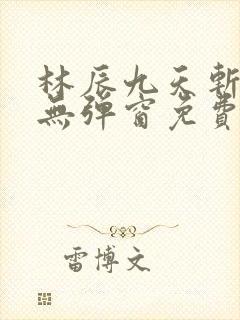 林辰九天斬
無彈窗免費
雷博文